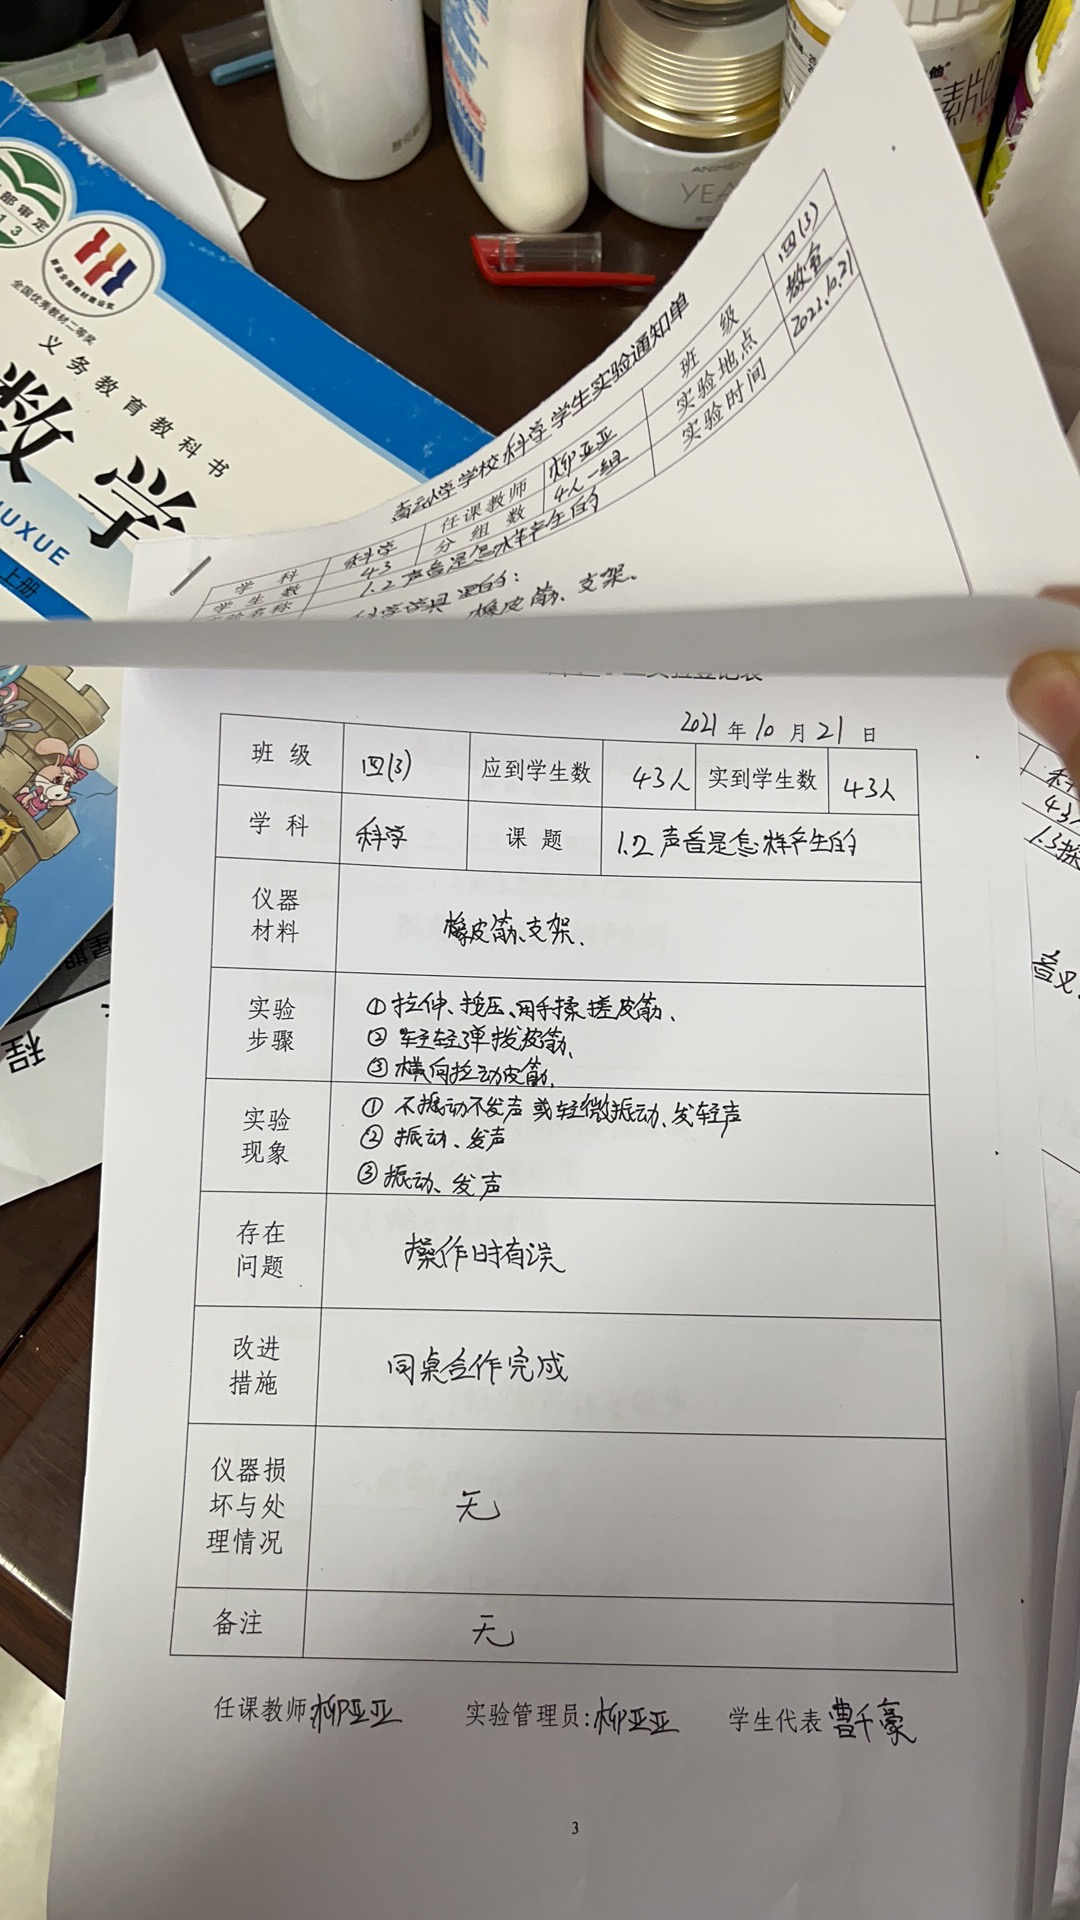 义务教育教科书
数学
上册
全国优秀教材二等奖
ANIMEN
YEA
素片
学生实验通知单
学科 科学 任课教师 柳亚亚 班级 四(3)
学生数 43 分组数 4人一组 实验地点 教室
1.2 声音是怎样产生的 实验时间 2021.10.21
橡皮筋、支架、
2021年10月21日
班级 四(3) 应到学生数 43人 实到学生数 43人
学科 科学 课题 1.2 声音是怎样产生的
仪器材料 橡皮筋、支架、
实验步骤 ①拉伸、按压、用手揉搓皮筋、
②轻轻弹拨皮筋、
③横向拉动皮筋、
实验现象 ①不振动不发声或轻微振动、发轻声
②振动、发声
③振动、发声
存在问题 操作时有误
改进措施 同桌合作完成
仪器损坏与处理情况 无
备注 无
任课教师:柳亚亚 实验管理员:柳亚亚 学生代表 曹千豪
3
程